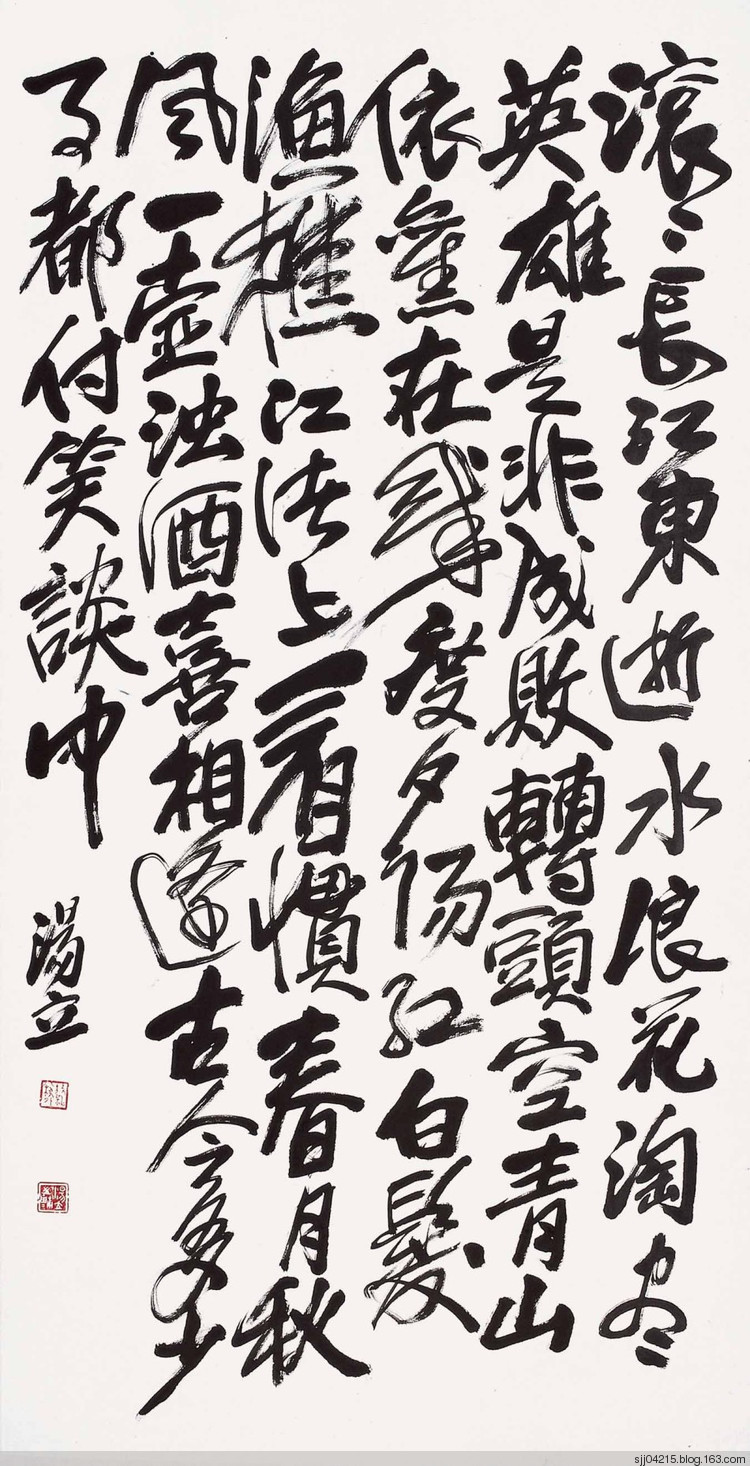 滚滚長江東逝水浪花淘尽
英雄是非成敗轉頭空青山
依舊在幾度夕陽紅白髮
渔樵江渚上看慣春月秋
風一壶浊酒喜相逢古今多少
事都付笑談中
湯立
sjj04215.blog.163.com